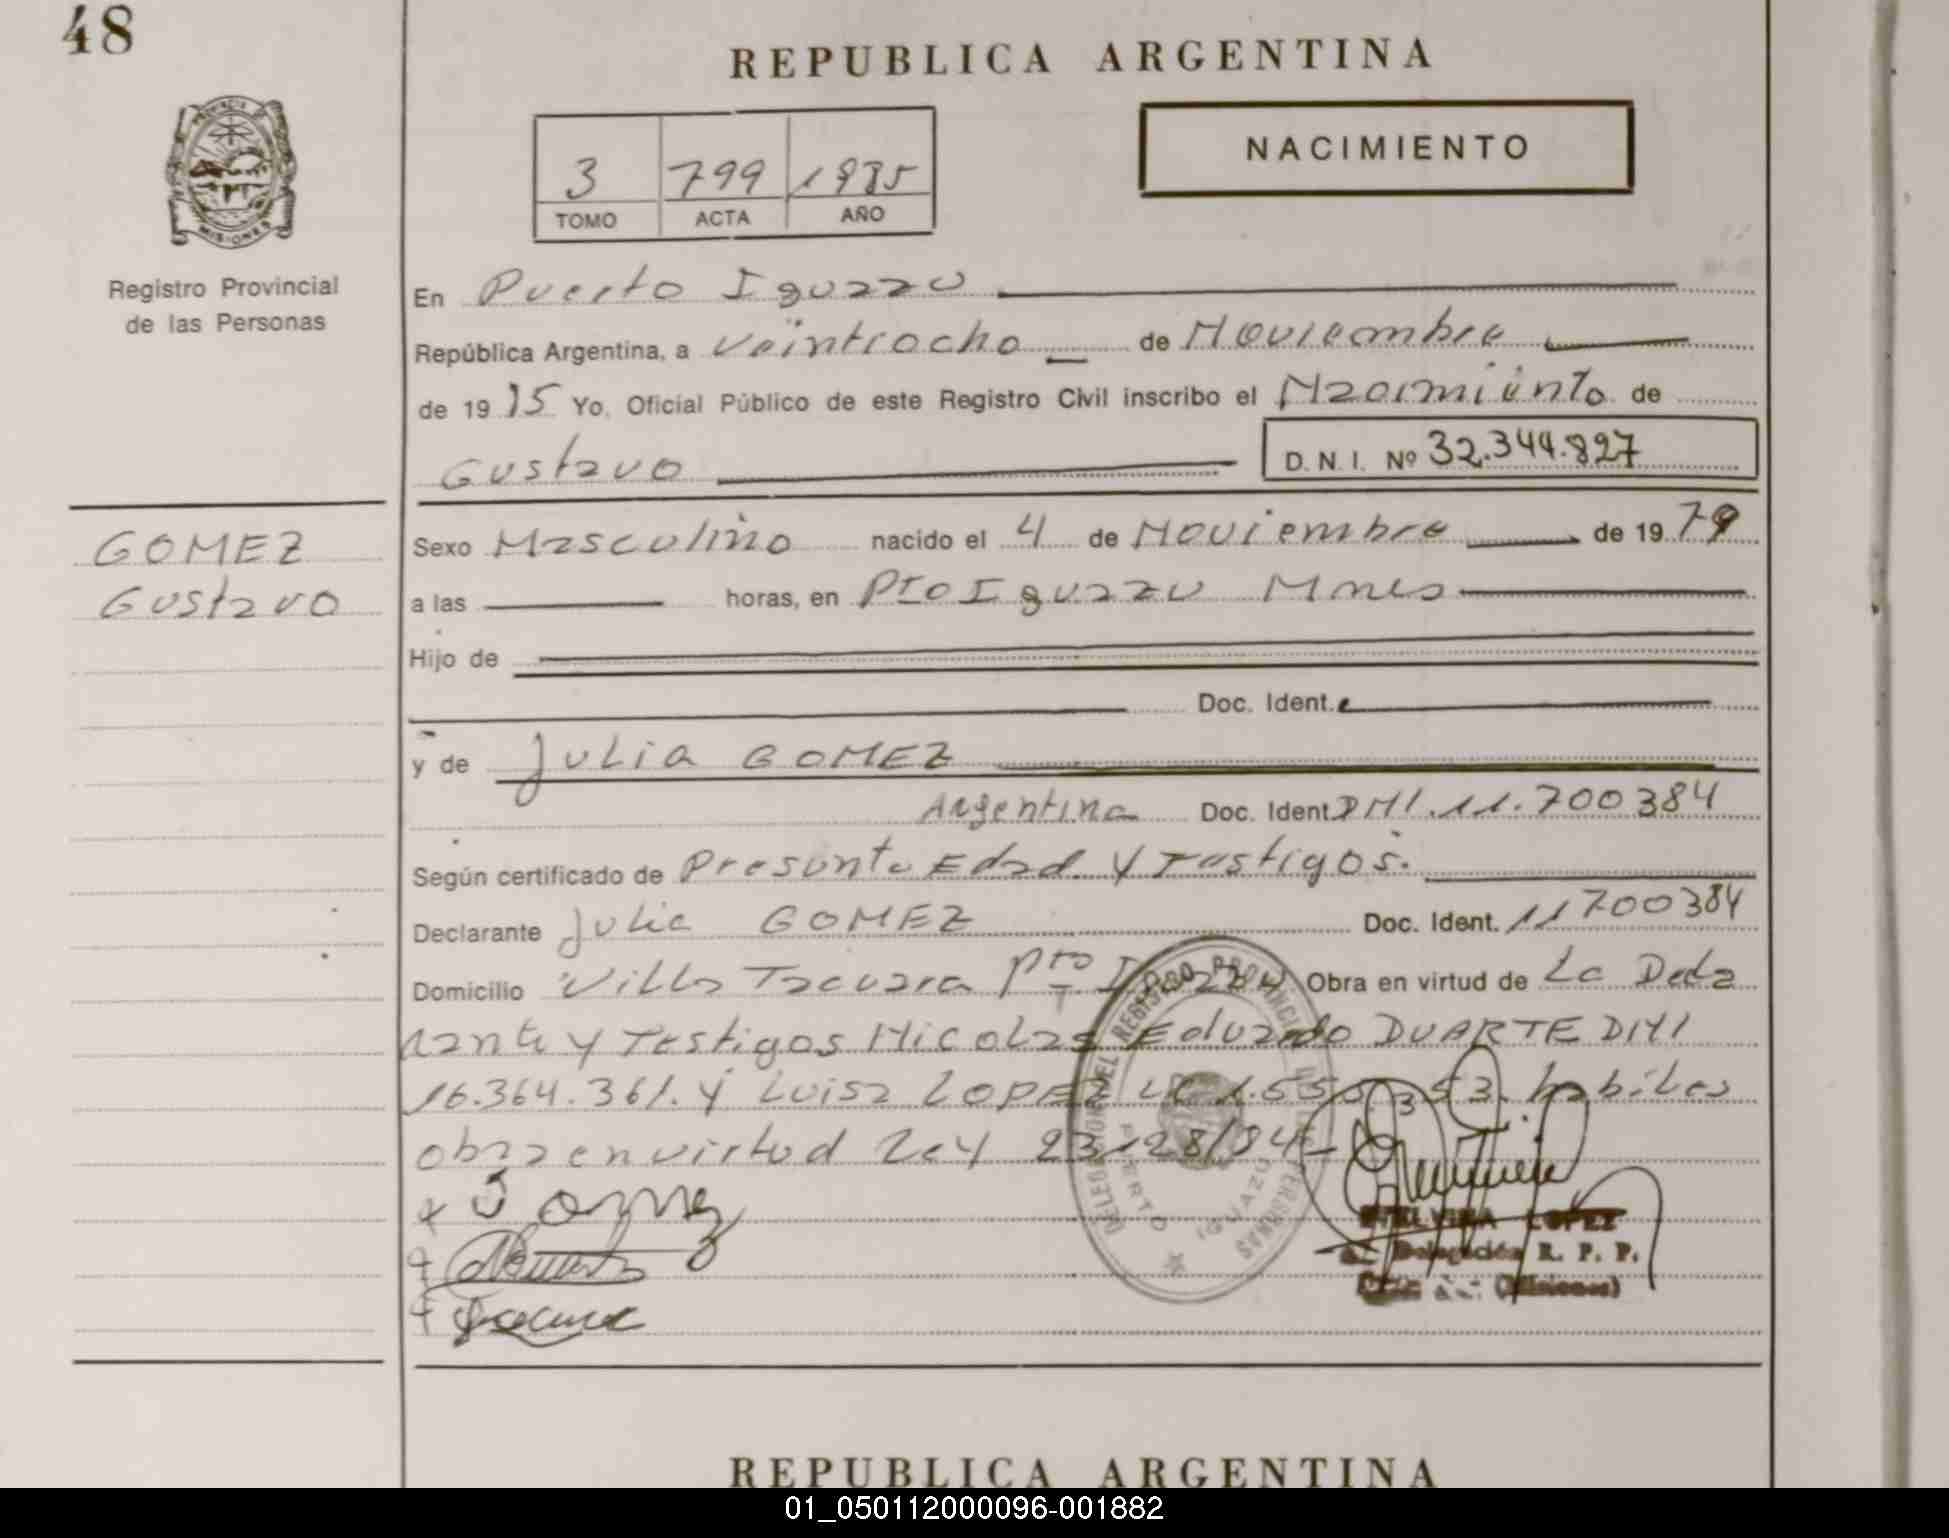 48
REPUBLICA ARGENTINA
NACIMIENTO
3 799 1985
TOMO ACTA AÑO
PROVINCIA DE
MISIONES
Registro Provincial
de las Personas
En Puerto Iguazu
República Argentina, a veintiocho de Noviembre
de 19 85 Yo, Oficial Público de este Registro Civil inscribo el Nacimiento de
Gustavo D. N. I. Nº 32.344.827
GOMEZ
Gustavo
Sexo Masculino nacido el 4 de Noviembre de 19 79
a las horas, en Pto Iguazu Mnes
Hijo de
Doc. Ident.
y de Julia GOMEZ
Argentina Doc. Ident. DNI. 11.700384
Según certificado de Presunta Edad y Testigos.
Declarante Julia GOMEZ Doc. Ident. 11700384
Domicilio Villa Tacuara Pto Iguazu Obra en virtud de La Decla
rante y Testigos Nicolas Eduardo DUARTE DNI
16.364.361. y Luisa LOPEZ LC 53. habiles
obra en virtud Ley 23.128/84
DELEGACION DEL REGISTRO PROVINCIAL DE LAS PERSONAS
PUERTO IGUAZU
J Gomez
ETELVINA LOPEZ
Delegación R. P. P.
(Misiones)
REPUBLICA ARGENTINA
01_050112000096-001882